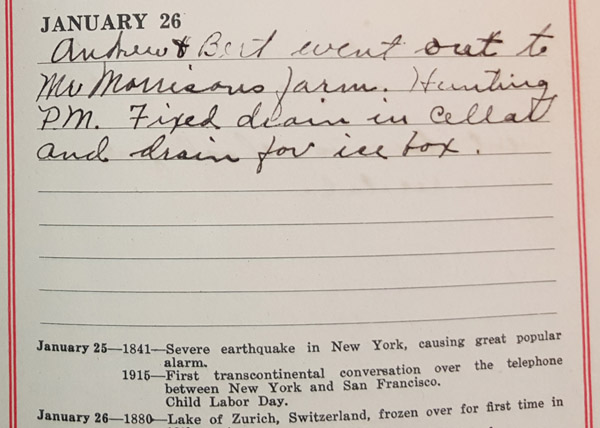 JANUARY 26
Andrew & Bert went out to
Mr Morrisons farm. Hunting
P.M. Fixed drain in cellar
and drain for ice box.
January 25—1841—Severe earthquake in New York, causing great popular
alarm.
1915—First transcontinental conversation over the telephone
between New York and San Francisco.
Child Labor Day.
January 26—1880—Lake of Zurich, Switzerland, frozen over for first time in